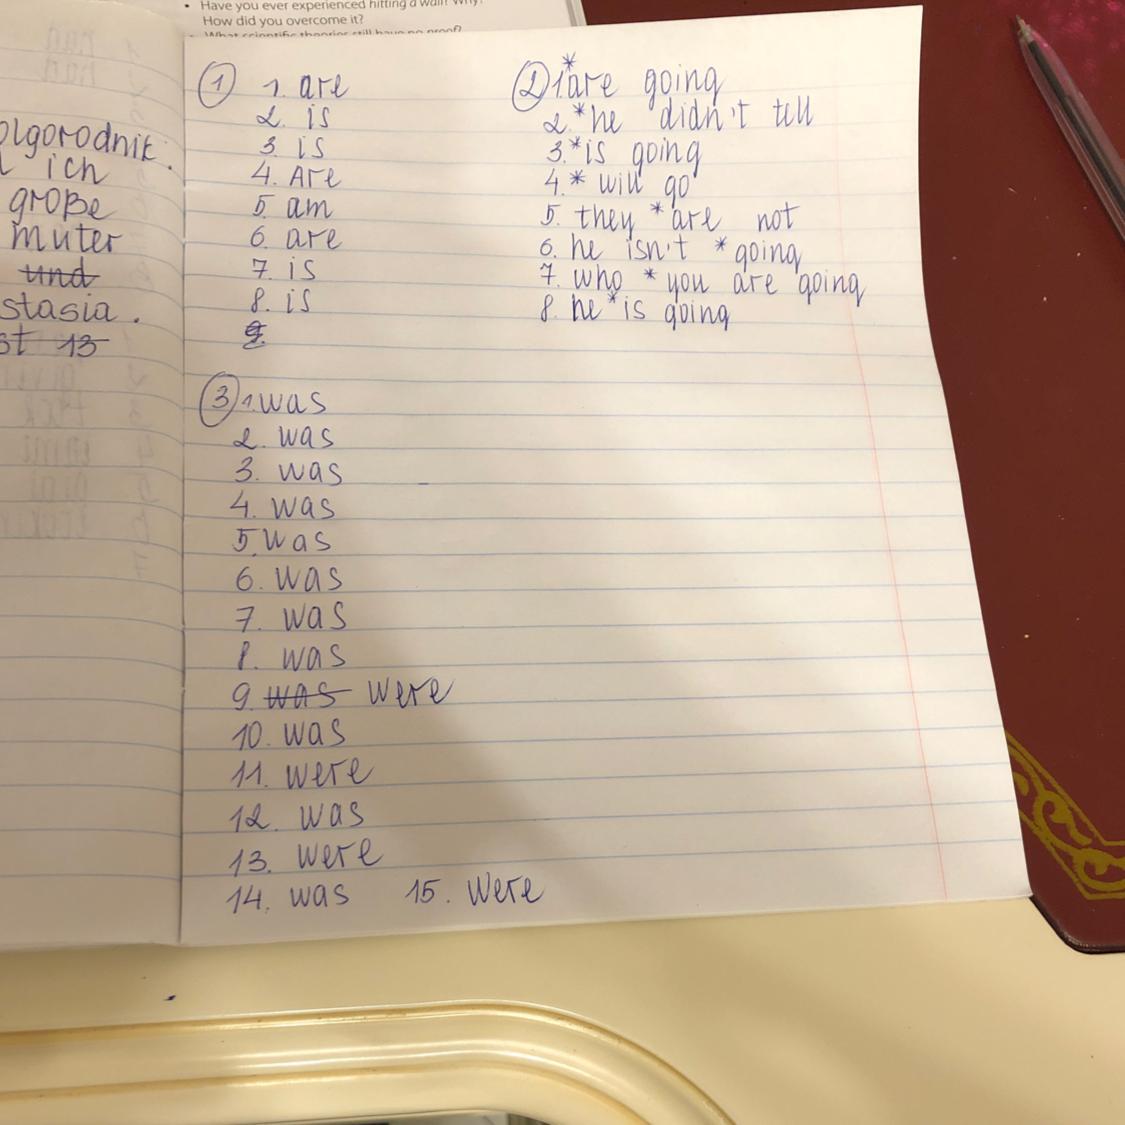 • Have you ever experienced hitting a wall? Why?
How did you overcome it?
• What scientific theories still have no proof?
olgorodnik.
ich
große
muter
und
stasia.
st 13
① 1. are
2. is
3. is
4. Are
5. am
6. are
7. is
8. is
9.
② 1.*are going
2.*he didn't tell
3.*is going
4.* will go
5. they *are not
6. he isn't *going
7. who *you are going
8. he *is going
③ 1. was
2. was
3. was
4. was
5. was
6. was
7. was
8. was
9. was were
10. was
11. were
12. was
13. were
14. was 15. were